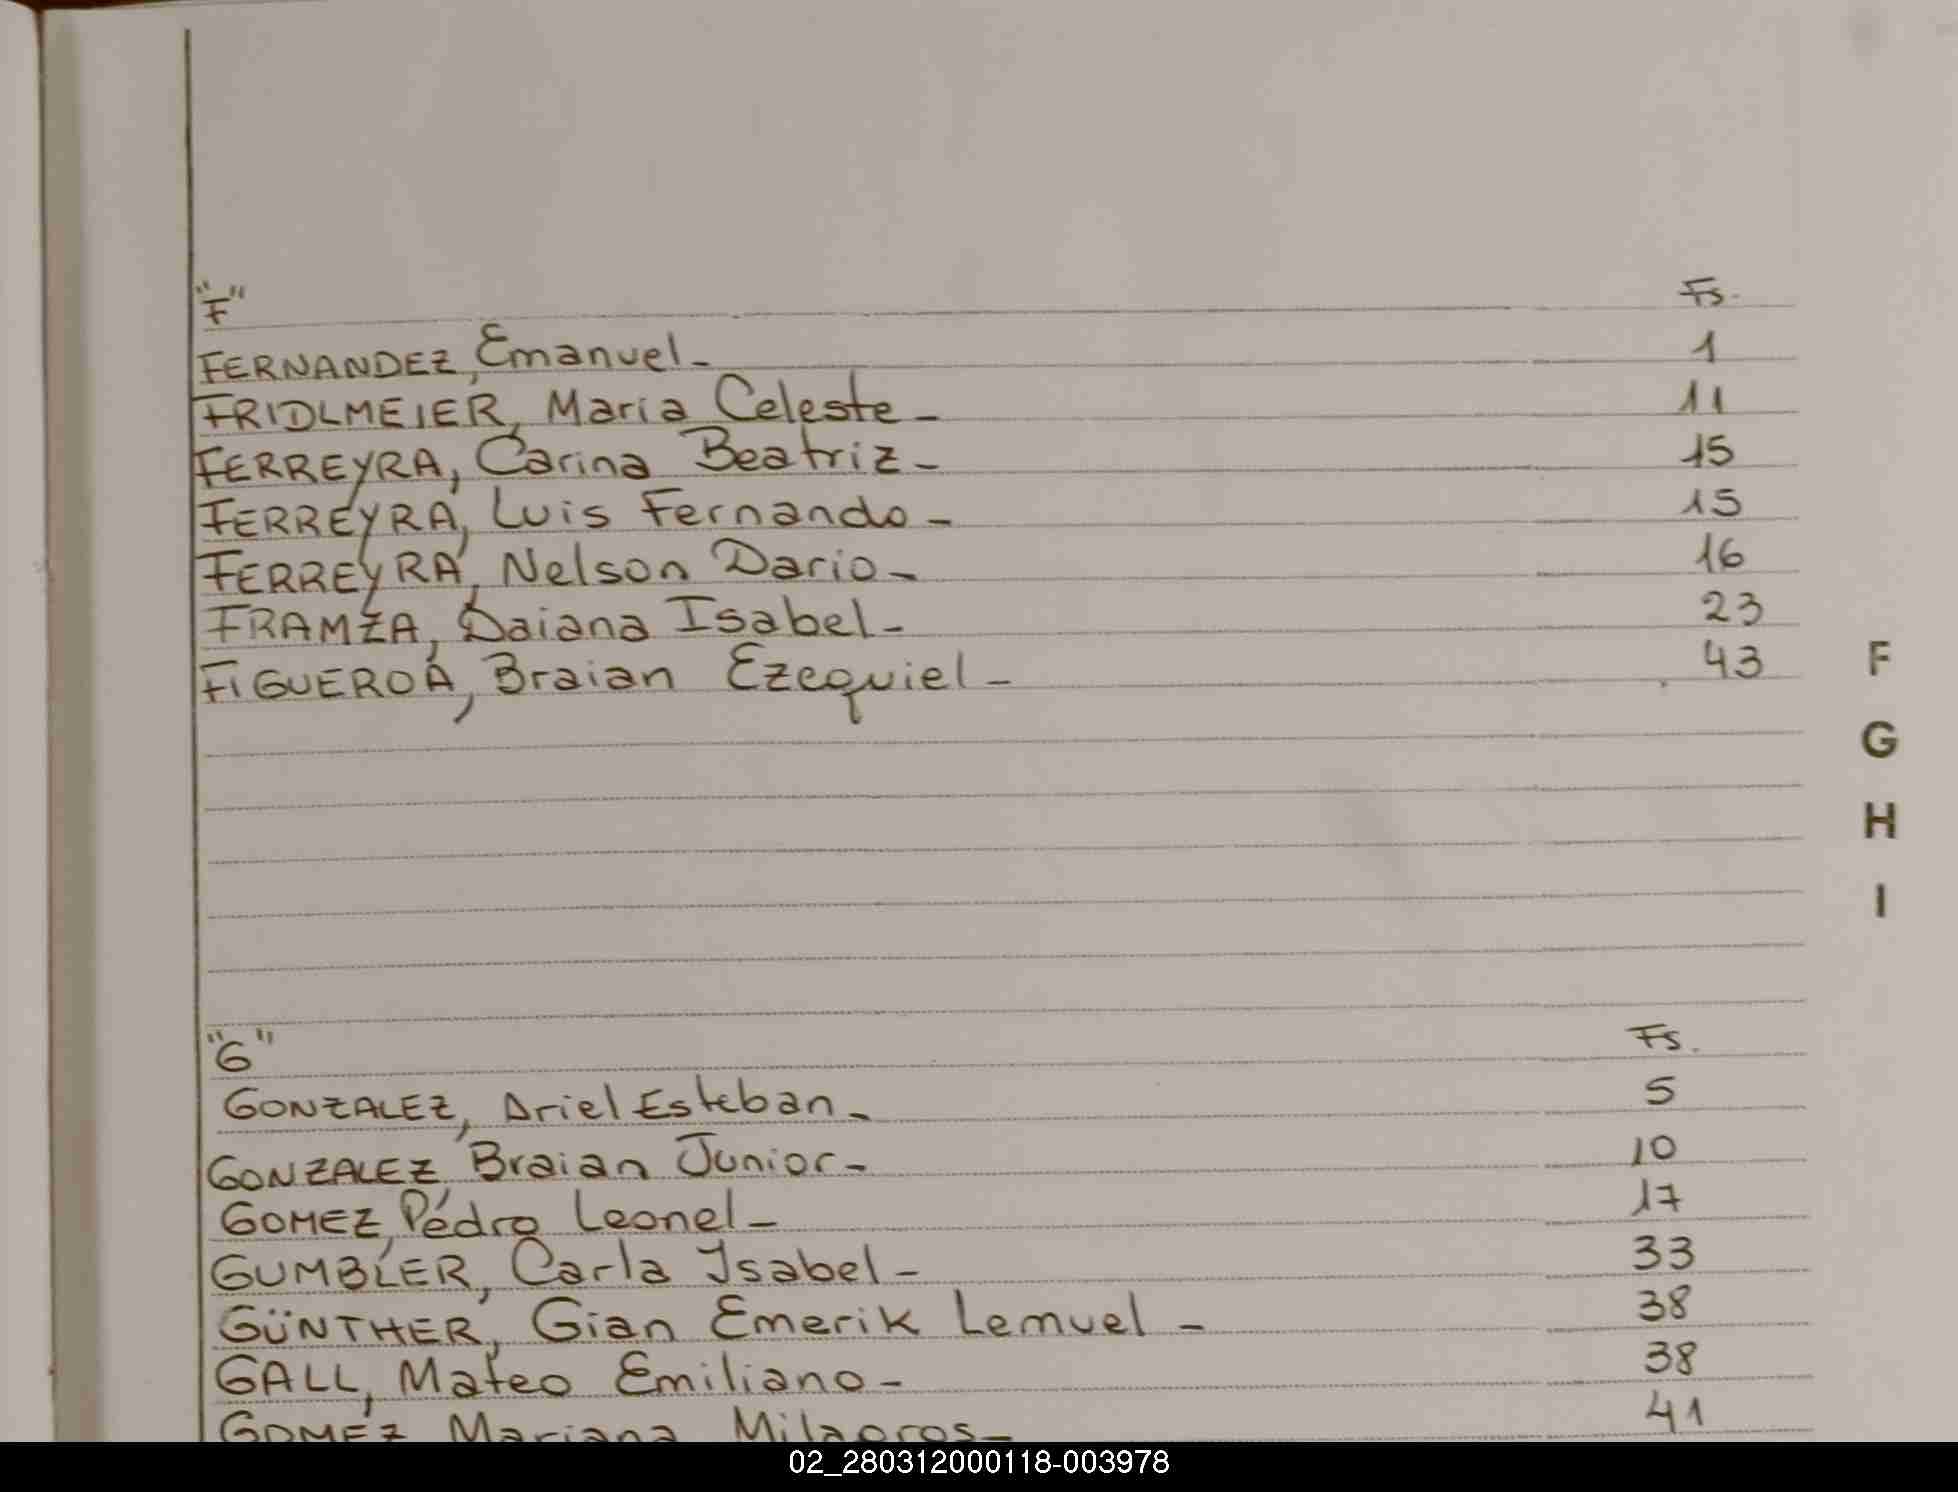 "F" Fs.
FERNANDEZ, Emanuel- 1
FRIDLMEIER, Maria Celeste- 11
FERREYRA, Carina Beatriz- 15
FERREYRA, Luis Fernando- 15
FERREYRA, Nelson Dario- 16
FRAMZA, Daiana Isabel- 23
FIGUEROA, Braian Ezequiel- 43
F
G
H
I
"G" Fs.
GONZALEZ, Ariel Esteban- 5
GONZALEZ Braian Junior- 10
GOMEZ, Pedro Leonel- 17
GUMBLER, Carla Isabel- 33
GÜNTHER, Gian Emerik Lemuel- 38
GALL, Mateo Emiliano- 38
GOMEZ Mariana Milagros- 41
02_280312000118-003978